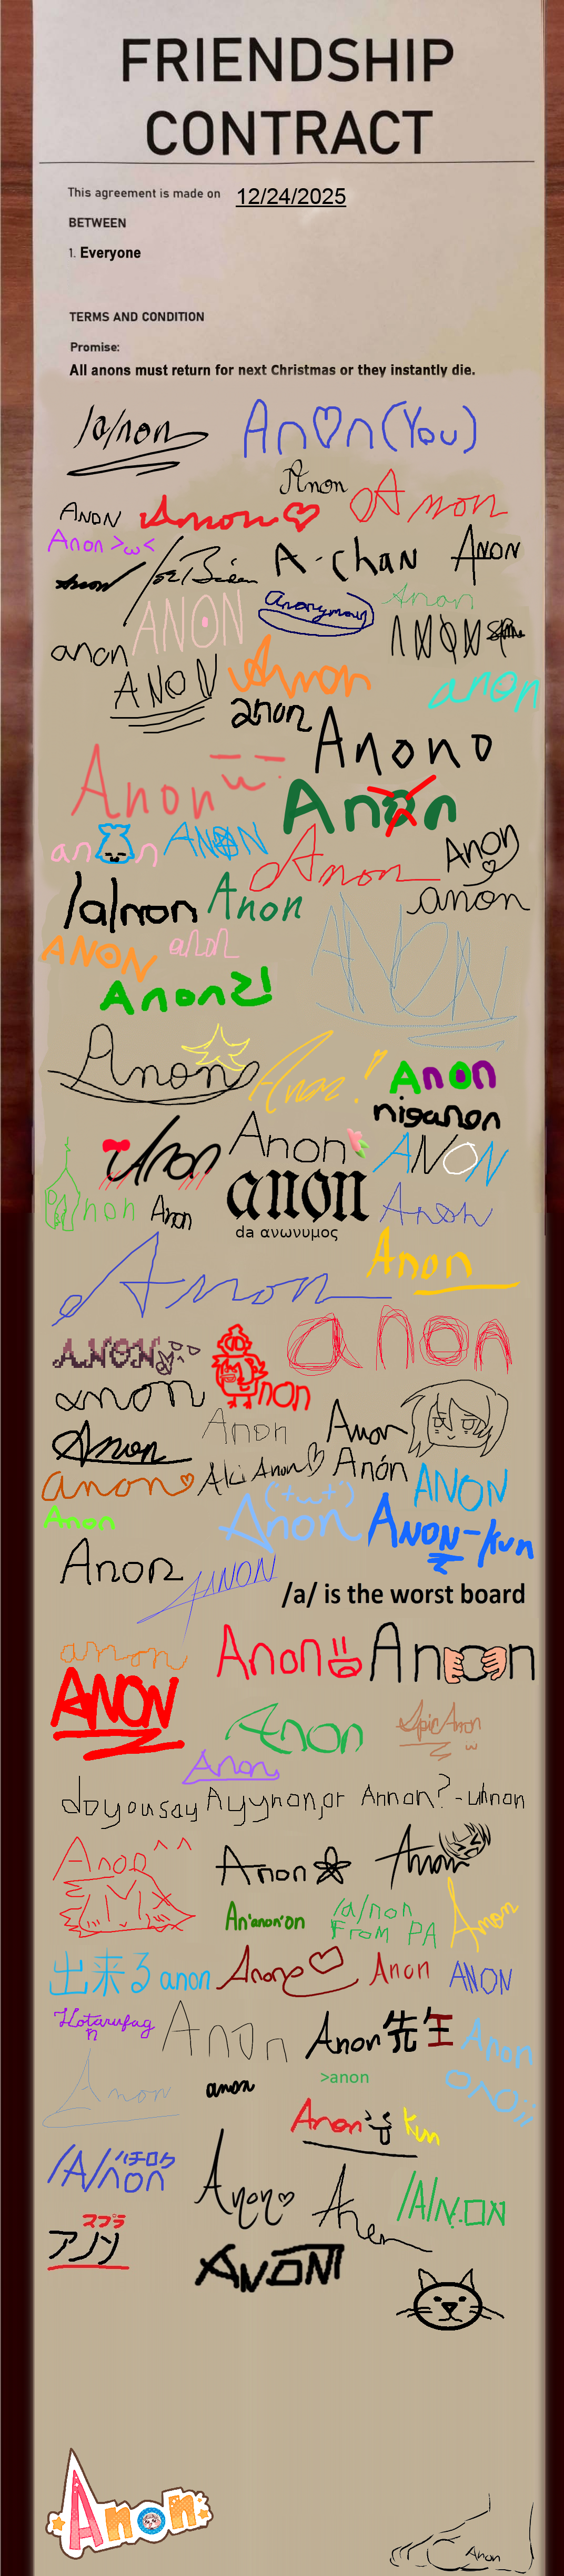 FRIENDSHIP
CONTRACT
This agreement is made on 12/24/2025
BETWEEN
1. Everyone
TERMS AND CONDITION
Promise:
All anons must return for next Christmas or they instantly die.
/a/non
An♡n (You)
Anon
Anon
Anon ♡
Anon
Anon >ω<
Anon
Joe Biden
A-chan
Anon
ANON
Anonymous
Anon
anon
ANON
ANON
Anon
anon
anon
Anono
Anon
Anon
anon
ANON
Anon
Anon
/a/non
Anon
anon
ANON
anon
ANON
Anon2!
Anon
Anon!
Anon
niganon
Anon
Anon
ANON
Anon
Anon
anon
Anon
da ανωνυμος
Anon
Anon
ANON
non
anon
anon
Anon
Anon
Anon
Anon
Aki Anon♡
Anón
anon♡
ANON
Anon
('+ω+')
Anon
ANON-kun
Anon
ANON
/a/ is the worst board
anon
Anon
Anon
ANON
Anon
EpicAnon
ω
Anon
do you say Ayynon, or Annon? - uhnon
Anon ^^
Anon
Anon
An'anon'on
/a/non
From PA
Anon
出来る anon
Anon
Anon
ANON
Hotarufag
Anon
Anon先生
Anon
Anon
anon
>anon
Anon
kun
/A/non
ハチロク
Anon♡
Anon
/A/N.ON
マプラ
アノン
ANON
Anon
Anon